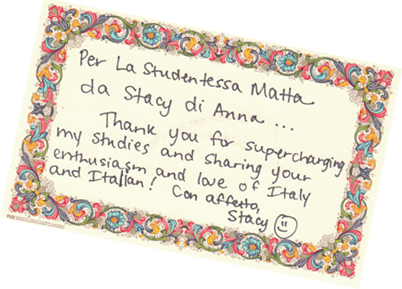 Per La Studentessa Matta
da Stacy di Anna ...
Thank you for supercharging
my studies and sharing your
enthusiasm and love of Italy
and Italian! Con affetto,
Stacy